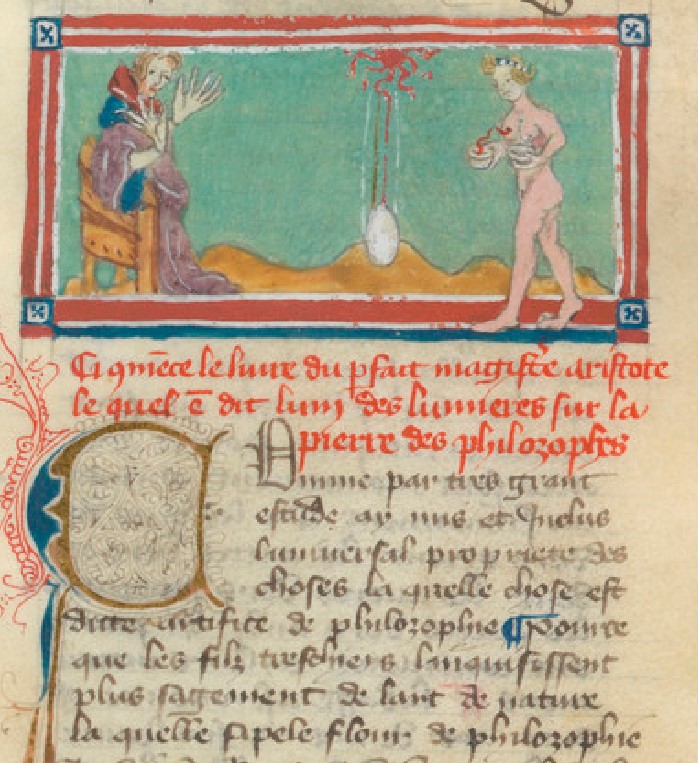 Ci 9mēce le liure du pfait magistr̄e aristote
le quel ē dit lum des lumieres sur la
pierre des philozophes
Comme par tres grant
estude ay mis et Inclus
luniuersal propriete des
choses la quelle chose est
ditte artifice de philozophie ¶ Pource
que les filz treschiers linquisissent
plus sagement de lart de nature
la quelle sapele flour de philozophie